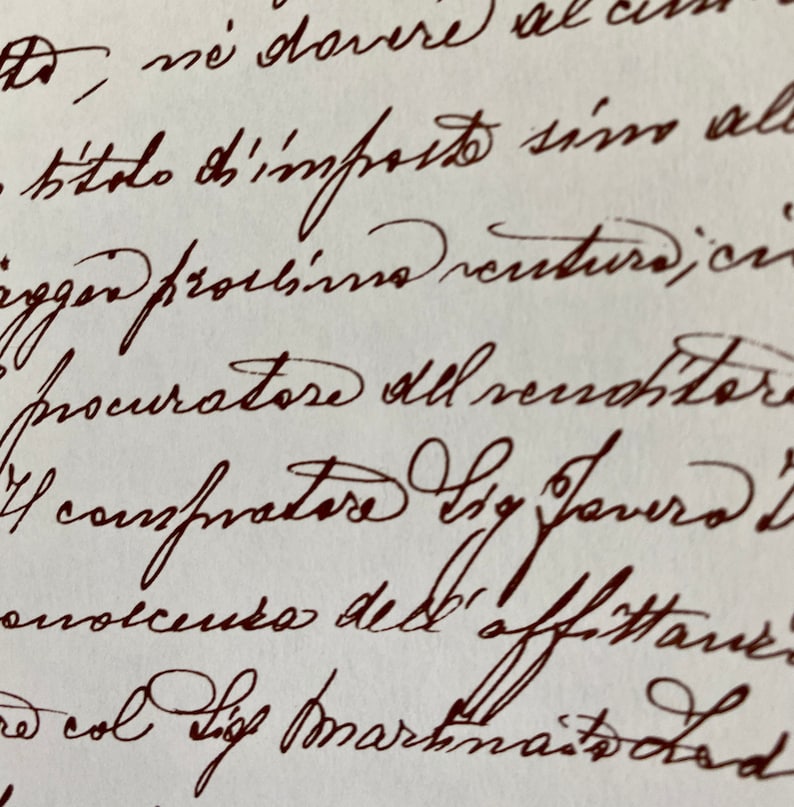 né dovere al
titolo d'imposte sino all
prossimo venturo; ci
procuratore del venditore
Il compratore Sig
onoscenza dell'affittanz
col Sig Martinaito